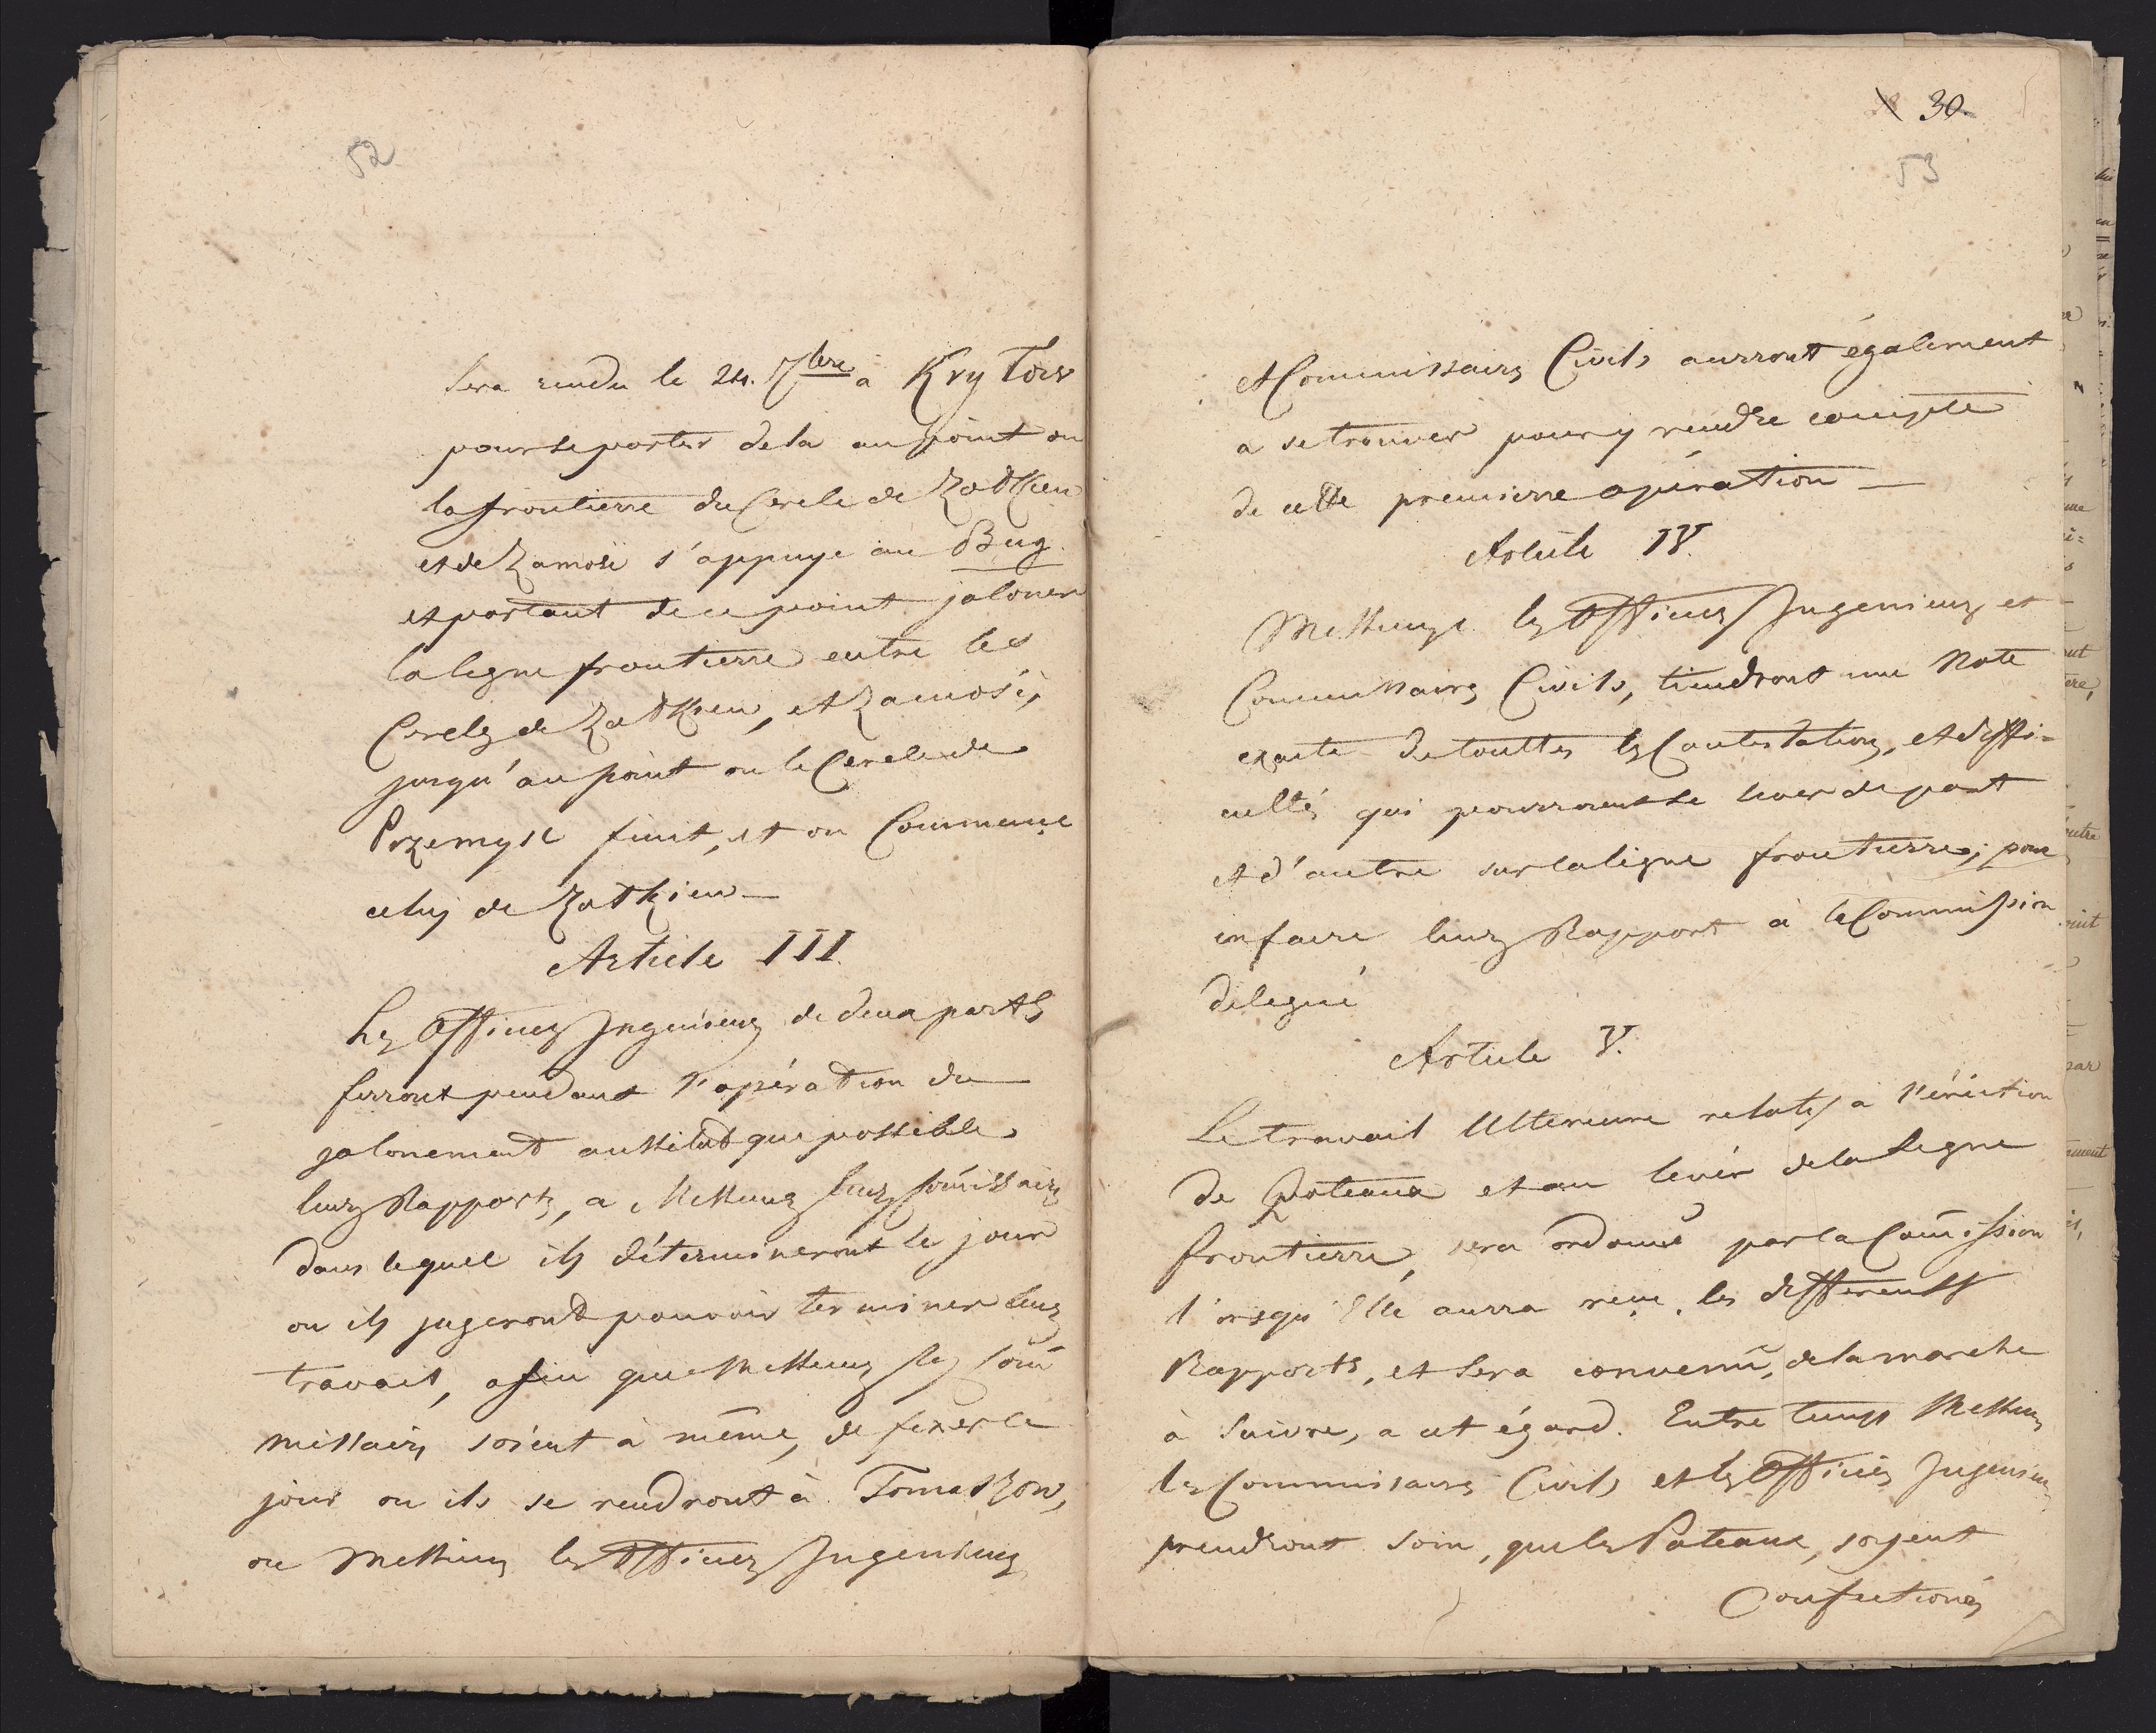 52
Sera rendu le 24. 7bre à Krylow
pour se porter dela au point ou
la frontierre du Cercle de Zołkiew
et de Zamosć s'appuye au Bug
et partant de ce point jaloner
la ligne frontierre entre les
Cercles de Zołkiew, et Zamosć,
jusqu'au point ou le Cercle de
Przemysl finit, et ou Commence
celuy de Zołkiew —
Article III
Les Officiers Ingenieurs de deux parts
ferront pendant l'opération du
jalonement aussitod que possible
leurs Rapports, a Messieurs leurs Comissaires
dans lequel ils détermineront le jour
ou ils jugerond pouvoir terminer leur
travail, afin que Messieurs les Com̄
missaires soient à même, de fixer le
jour ou ils se rendront à Tomaszow,
ou Messieurs les Officiers Ingenieurs
30
53
et Commissaires Civils aurront également
a se trouver pour y rendre compte
de cette premierre opération —
Article IV.
Messieurs les Officiers Ingenieurs et
Commissaires Civils, tiendront une Note
exacte de touttes les Contestations, et diffi=
cultés qui pourront se lever de part
et d'autre sur la ligne frontierre, pour
en faire leurs Rapport à la Commission
delegué
Article V.
Le travail Ulterieure relatif à l'éréction
de Poteaux et au levér de la Ligne
frontierre, sera ordonné par la Com̄ission
l'orsqu'Elle aurra reçu les differents
Rapports, et Sera convenu, de la marche
à Suivre, a cet égard. Entre temps Messieurs
les Commissaires Civils et les Officiers Ingenieurs
prendront soin, que les Poteaux, soyent
Confectionés